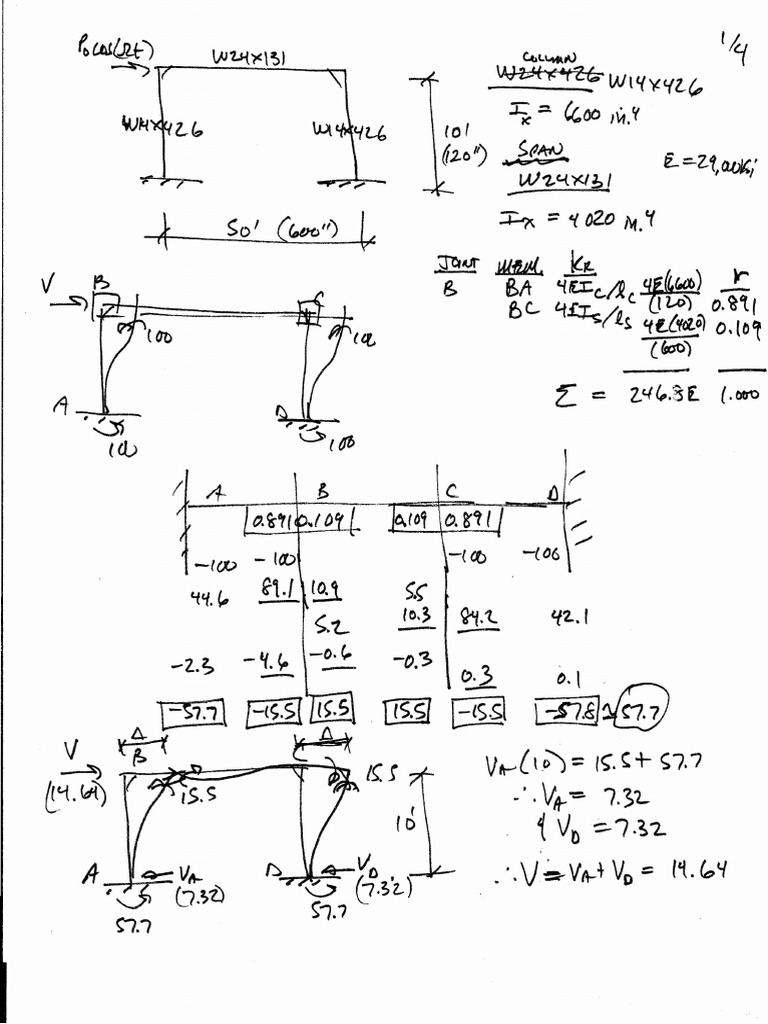 1/4
P₀cos(Ωt)
W24x131
W14x426
W14x426
10'
(120")
50' (600")
COLUMN
W24x426 W14x426
Iₓ = 6600 in.4
SPAN
W24x131
Iₓ = 4020 in.4
E = 29,000ksi
JOINT MEM. KR r
B BA 4EIc/lc 4E(6600)/(120) 0.891
BC 4EIs/ls 4E(4020)/(600) 0.109
Σ = 246.8E 1.000
V
B
C
100
100
A
D
100
100
A B C D
0.891 0.109 0.109 0.891
-100 -100 -100 -100
44.6 89.1 10.9 5.5
5.2 10.3 84.2 42.1
-2.3 -4.6 -0.6 -0.3
0.3 0.1
-57.7 -15.5 15.5 15.5 -15.5 -57.8 ≈ 57.7
Δ
Δ
V
B
C
(14.64)
15.5
15.5
10'
A
VA
(7.32)
D
VD
(7.32)
57.7
57.7
VA(10) = 15.5 + 57.7
∴ VA = 7.32
& VD = 7.32
∴ V = VA + VD = 14.64